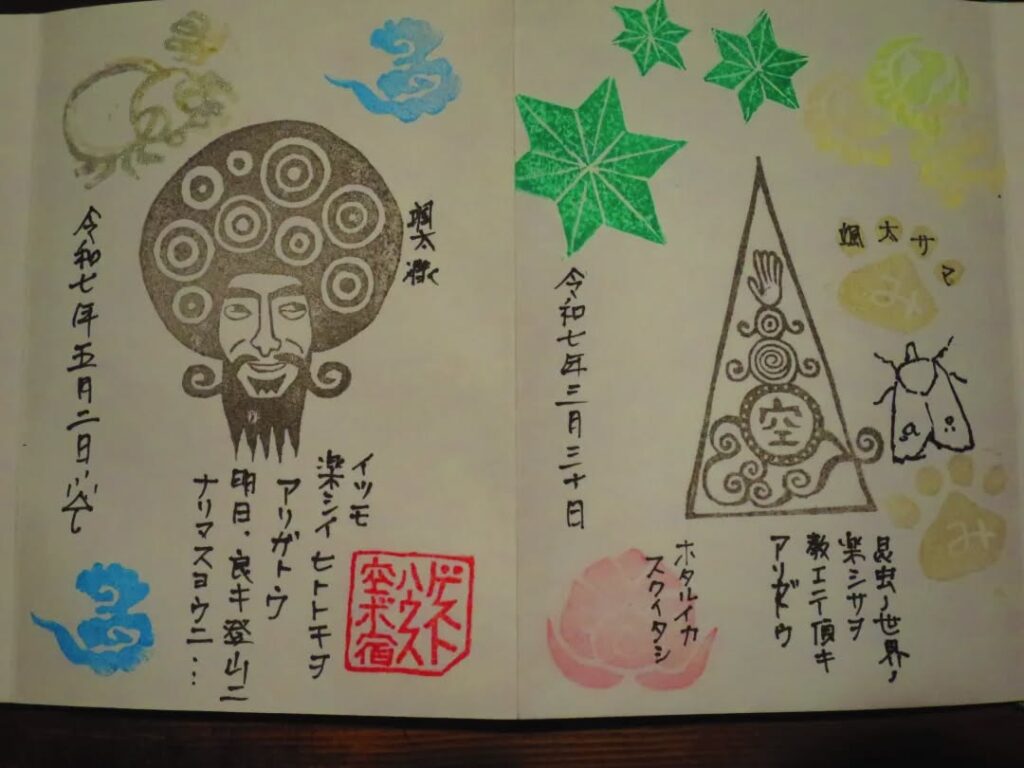 颯太サマ
み
み
昆虫ノ世界ノ
楽シサヲ
教エテ頂キ
アリガトウ
空
ホタルイカ
スクイタシ
令和七年三月三十日
颯太様
イツモ
楽シイヒトトキヲ
アリガトウ
明日、良キ登山ニ
ナリマスヨウニ…
ゲスト
ハウス
空ボ宿
令和七年五月二日